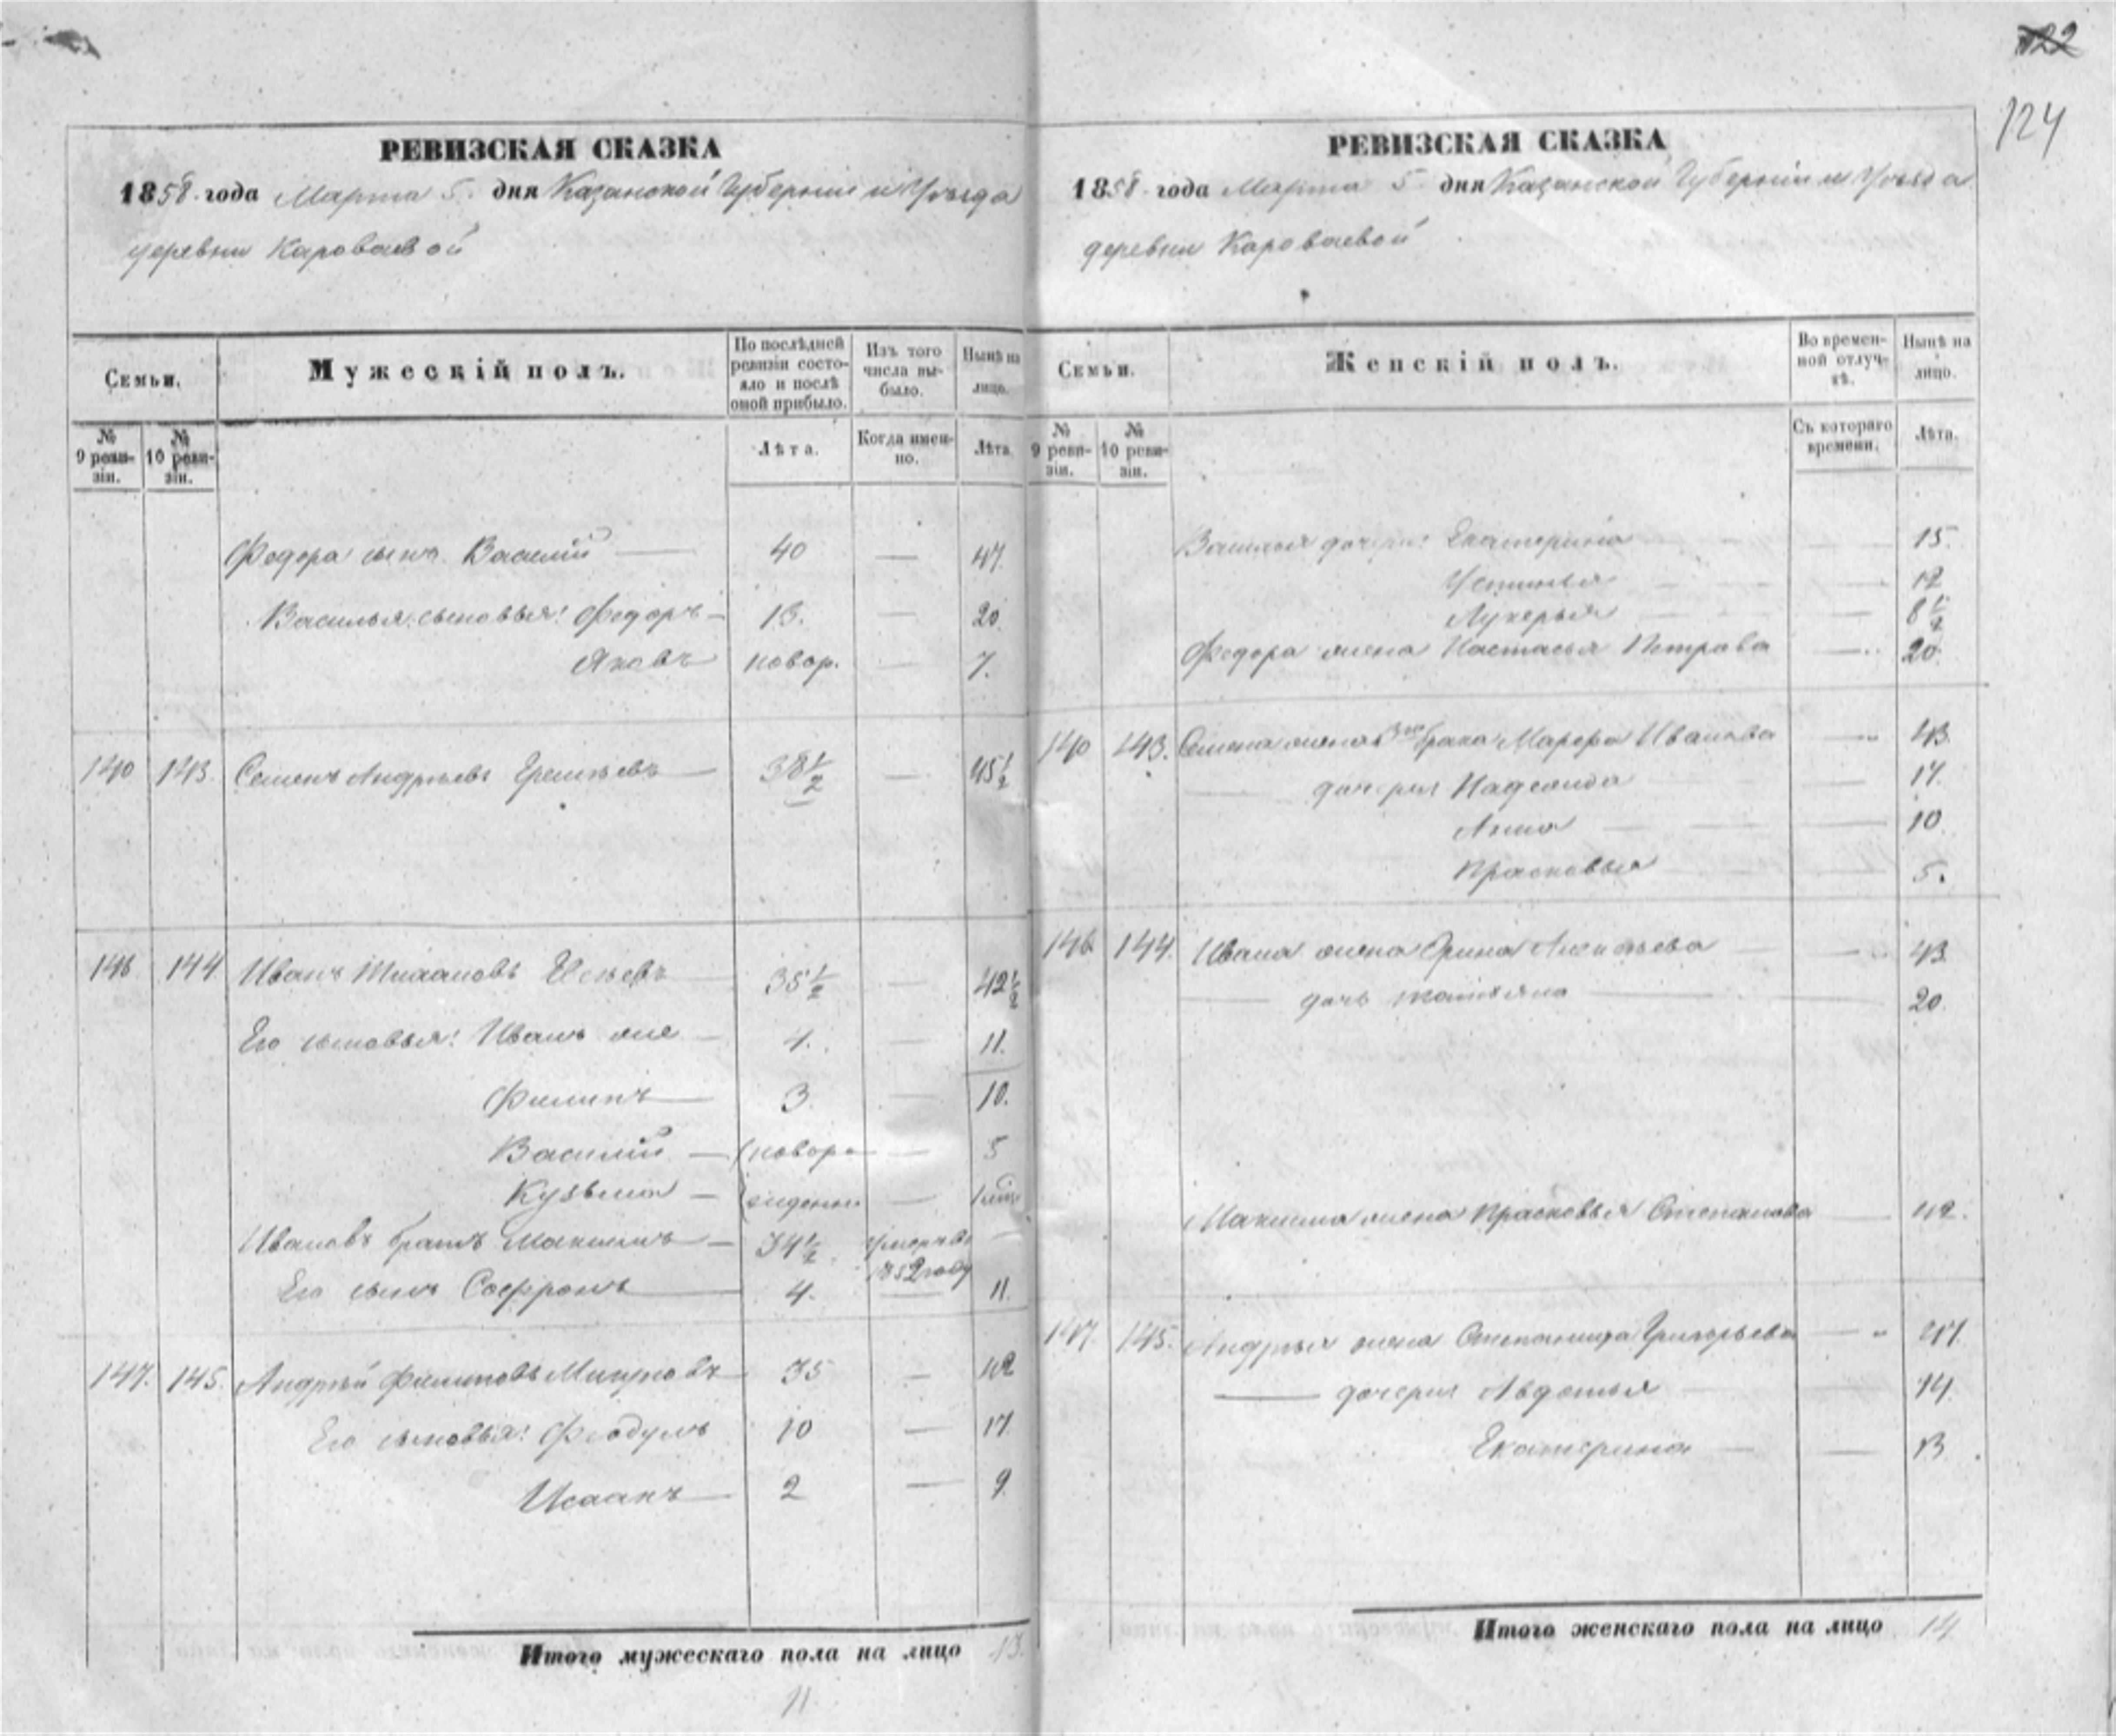 122
124
РЕВИЗСКАЯ СКАЗКА
1858 года Марта 5. дня Казанской Губернии и Уѣзда
деревни Караваевой
Семьи.
Мужескій полъ.
По послѣдней ревизіи состояло и послѣ оной прибыло.
Изъ того числа выбыло.
Нынѣ на лицо.
№ 9 ревизіи.
№ 10 ревизіи.
Лѣта.
Когда именно.
Лѣта.
Федора сынъ Василій — 40 — 47
Василья сыновья: Федоръ — 13. — 20
Яковъ новор. — 7.
140 143. Семенъ Андреевъ — 38 1/2 — 45 1/2
146 144 Иванъ — 35 1/2 — 42 1/2
Его сыновья: Иванъ же — 4. — 11.
Филипъ — 3. — 10.
Василій — новоро — 5
Кузьма — жденны —
Ивановъ братъ Максимъ — 34 1/2 умеръ въ 1852 году —
Его сынъ Софронъ — 4. — 11.
147. 145. Андрей Филиповъ — 35 — 42
Его сыновья: Феодулъ 10 — 17
Исаакъ — 2 — 9.
Итого мужескаго пола на лицо 13.
11
РЕВИЗСКАЯ СКАЗКА
1858 года Марта 5. дня Казанской Губерніи и Уѣзда
деревни Караваевой
Семьи.
Женскій полъ.
Во временной отлучкѣ.
Нынѣ на лицо.
№ 9 ревизіи.
№ 10 ревизіи.
Съ котораго времени.
Лѣта.
Василья дочери: Екатерина — 15.
Устинья — 12
Лукерья — 8 1/2
Федора жена Настасья Петрова — 20.
140 143. Семена жена 3го брака Марфа Иванова — 43
дочери Надежда — 17.
Анна — 10
Прасковья — 5.
146 144. Ивана жена — 43
дочь Татьяна — 20.
Максима жена Прасковья Степанова — 42.
147. 145. Андрея жена Степанида Григорьева —
дочери Авдотья — 14.
Екатерина — 13.
Итого женскаго пола на лицо 14